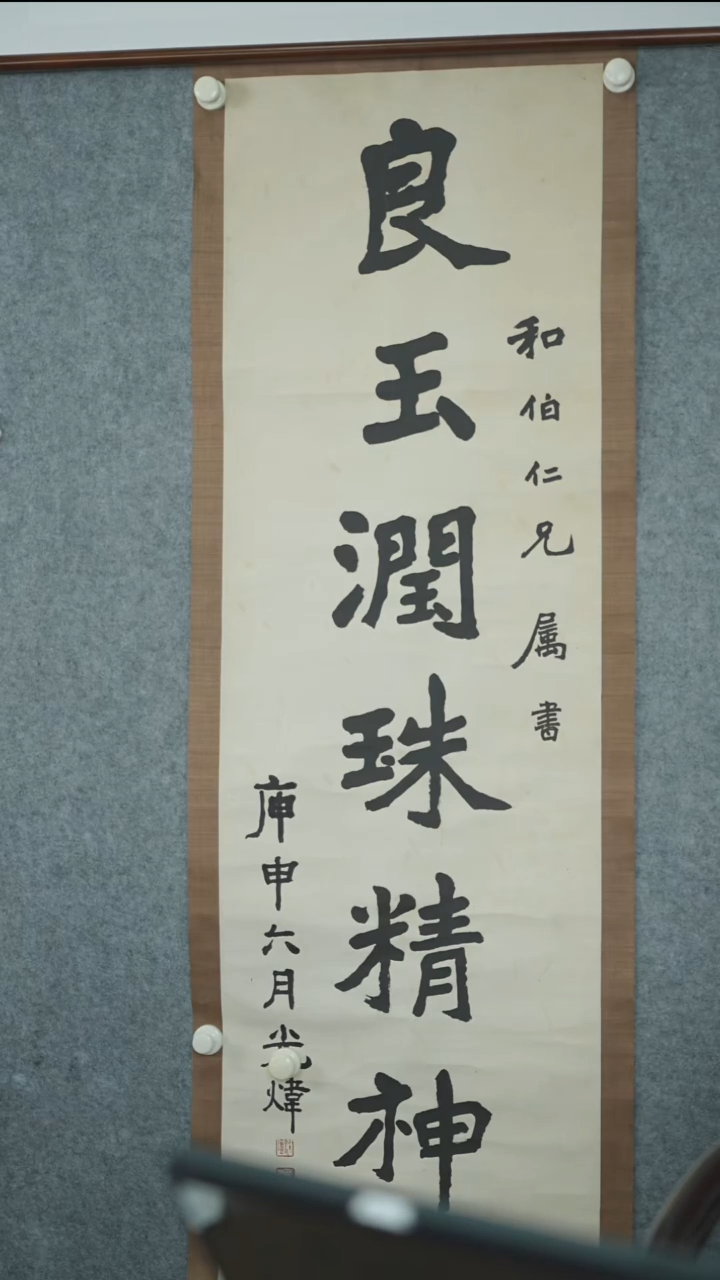 和伯仁兄属書
良玉潤珠精神
庚申六月光煒